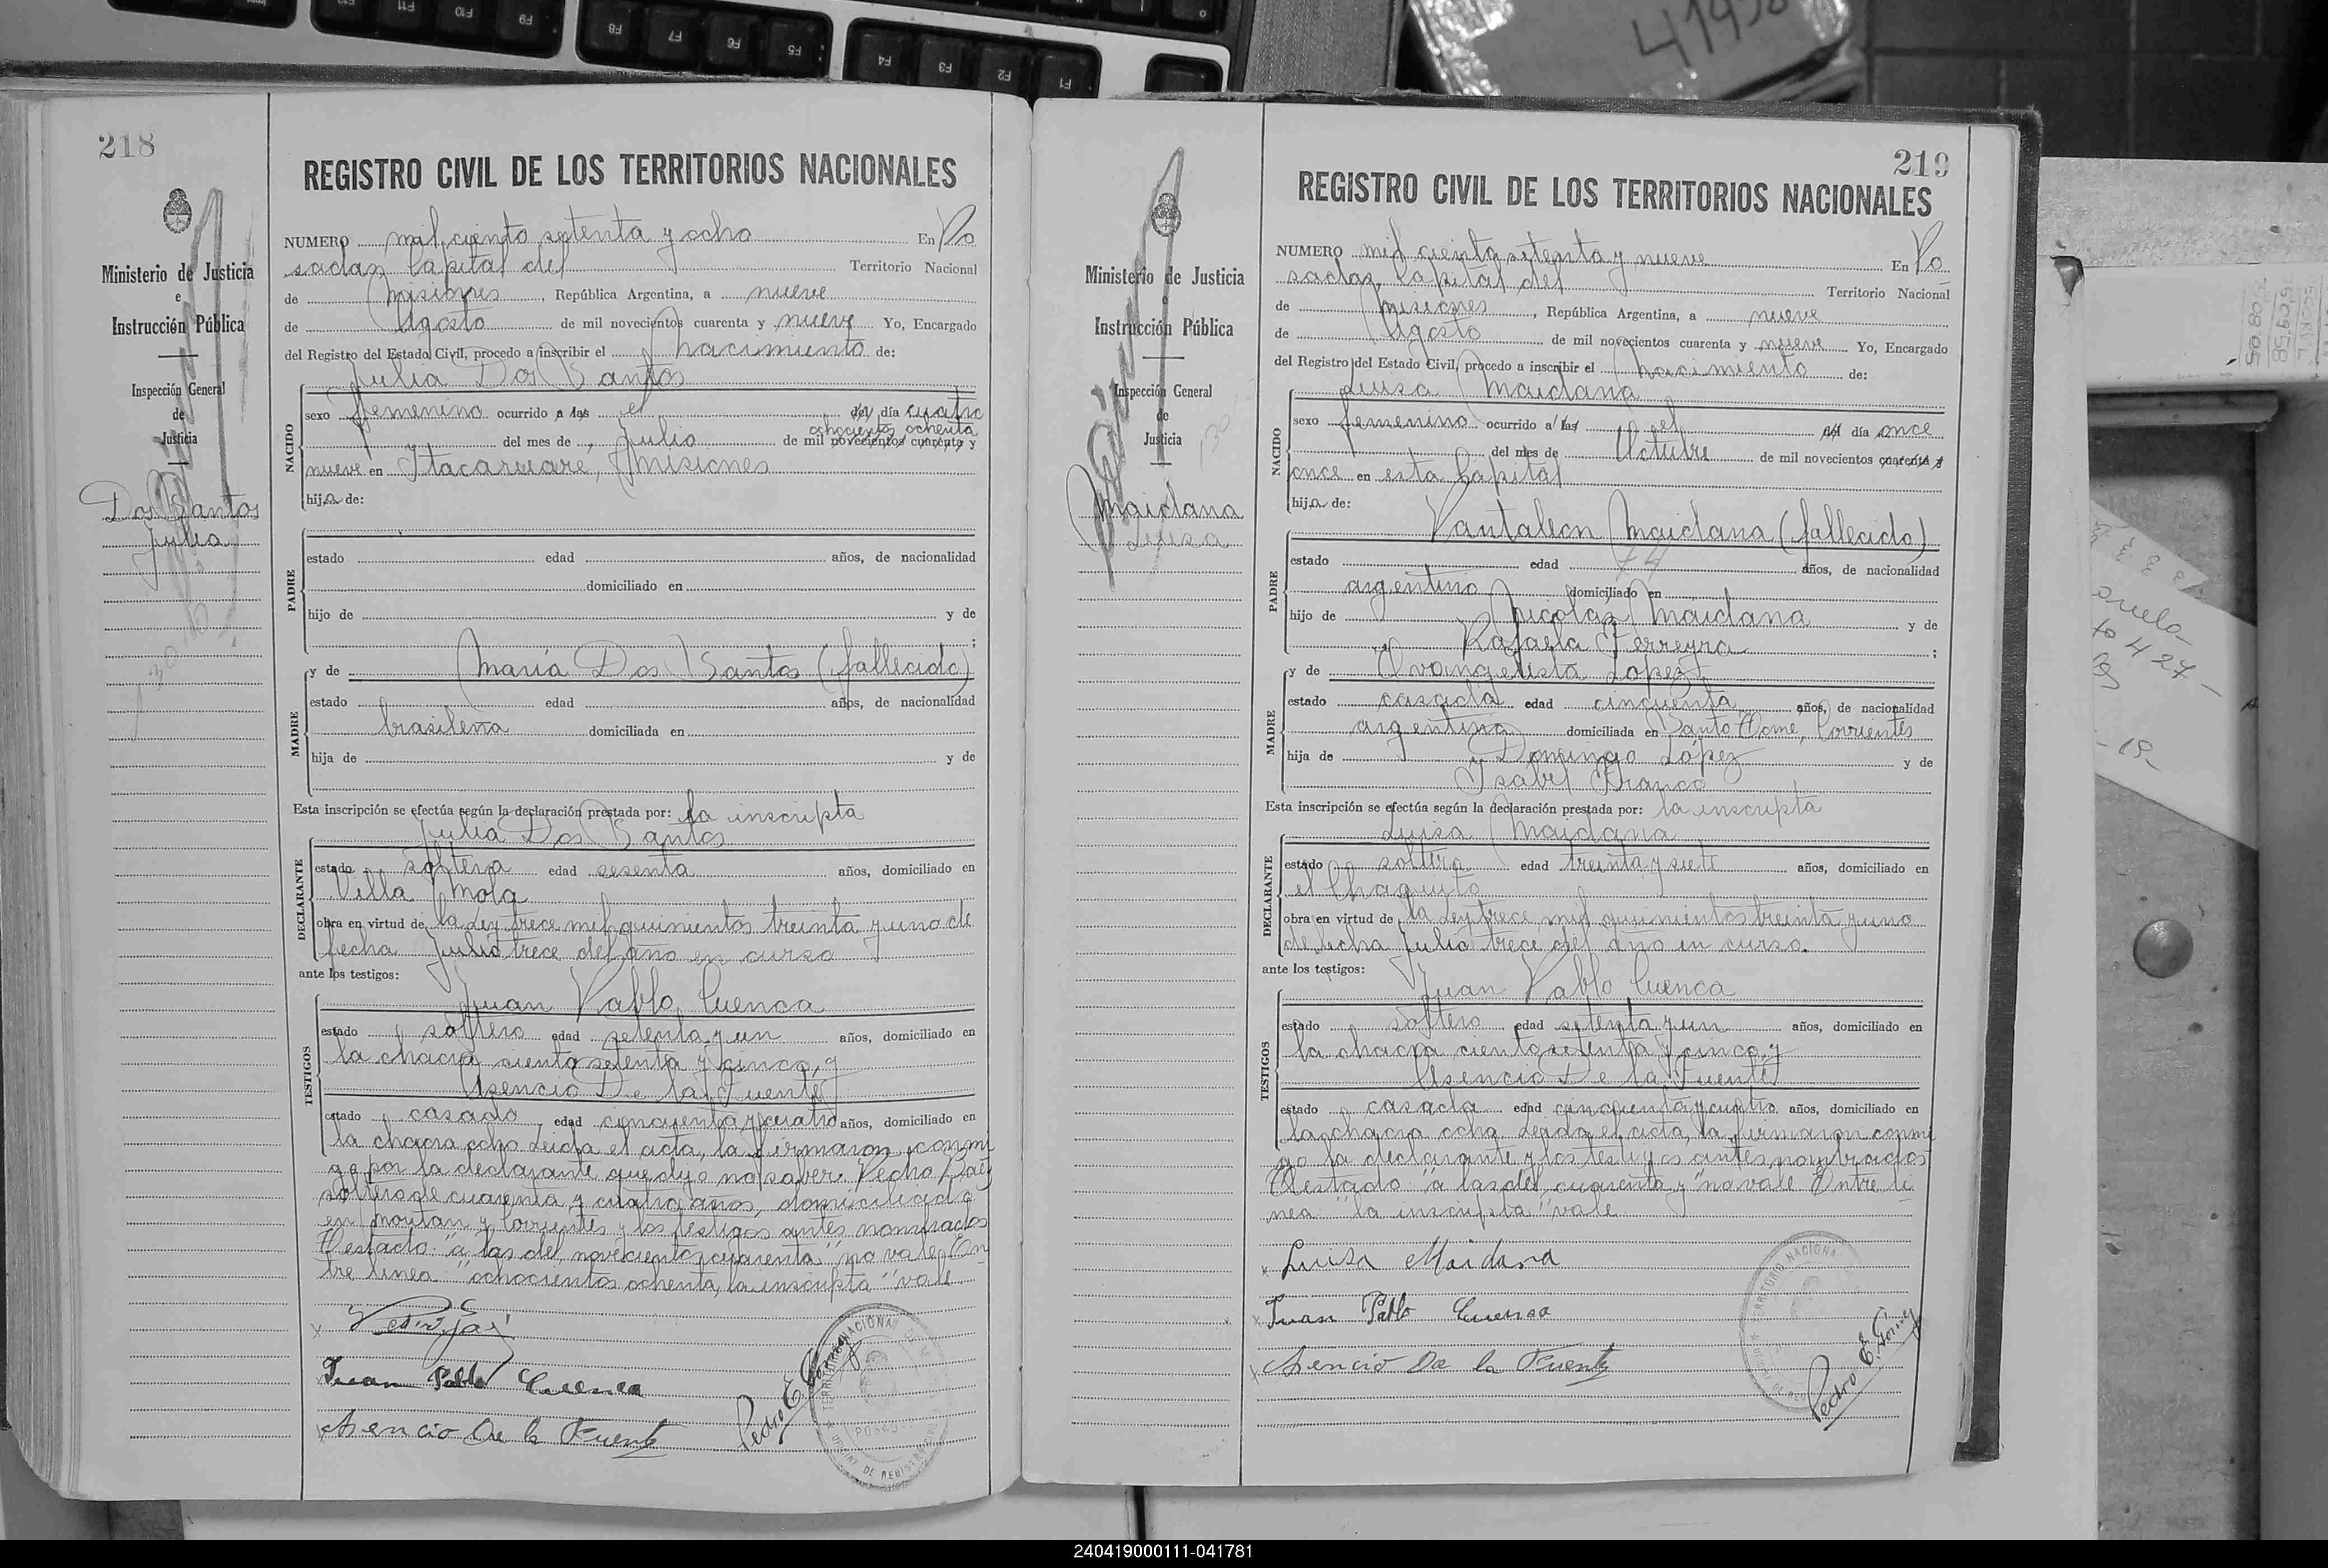 218
REGISTRO CIVIL DE LOS TERRITORIOS NACIONALES
Ministerio de Justicia
e
Instrucción Pública
Inspección General
de
Justicia
Dos Santos
Julia
NUMERO mil ciento setenta y ocho En Po
sadas, Capital del Territorio Nacional
de Misiones, República Argentina, a nueve
de Agosto de mil novecientos cuarenta y nueve Yo, Encargado
del Registro del Estado Civil, procedo a inscribir el nacimiento de:
Julia Dos Santos
NACIDO
sexo femenino ocurrido a las el del día cuatro
ochocientos ochenta
del mes de Julio de mil novecientos cuarenta y
nueve en Itacaruaré, Misiones
hija de:
PADRE
estado edad años, de nacionalidad
domiciliado en
hijo de y de
;
y de María Dos Santos (fallecida)
MADRE
estado edad años, de nacionalidad
brasileña domiciliada en
hija de y de
Esta inscripción se efectúa según la declaración prestada por: la inscripta
Julia Dos Santos
DECLARANTE
estado soltera edad sesenta años, domiciliado en
Villa Mola
obra en virtud de la ley trece mil quinientos treinta y uno de
fecha Julio trece del año en curso
ante los testigos:
Juan Pablo Cuenca
TESTIGOS
estado soltero edad setenta y un años, domiciliado en
la chacra ciento setenta y cinco, y
Asencio De la Fuente
estado casado edad cincuenta y cuatro años, domiciliado en
la chacra ocho. Leída el acta, la firmaron conmi
go por la declarante que dijo no saber,
soltero de cuarenta y cuatro años, domiciliado
en y Corrientes y los testigos antes nombrados
Testado: "a las del, novecientos cuarenta" no vale. En
tre línea: "ochocientos ochenta, la inscripta" vale.
Juan Pablo Cuenca
Asencio De la Fuente
Pedro E. Gomez
219
REGISTRO CIVIL DE LOS TERRITORIOS NACIONALES
Ministerio de Justicia
e
Instrucción Pública
Inspección General
de
Justicia
Maidana
Luisa
NUMERO mil ciento setenta y nueve En Po
sadas, Capital del Territorio Nacional
de Misiones, República Argentina, a nueve
de Agosto de mil novecientos cuarenta y nueve Yo, Encargado
del Registro del Estado Civil, procedo a inscribir el nacimiento de:
Luisa Maidana
NACIDO
sexo femenino ocurrido a las el del día once
del mes de Octubre de mil novecientos cuarenta y
once en esta Capital
hija de:
Pantaleon Maidana (fallecido)
PADRE
estado edad años, de nacionalidad
argentino domiciliado en
hijo de Nicolás Maidana y de
Rafaela Ferreyra ;
y de Evangelista López
MADRE
estado casada edad cincuenta años, de nacionalidad
argentina domiciliada en Santo Tomé, Corrientes
hija de Domingo López y de
Isabel Franco
Esta inscripción se efectúa según la declaración prestada por: la inscripta
Luisa Maidana
DECLARANTE
estado soltera edad treinta y siete años, domiciliado en
el Chaquito
obra en virtud de la ley trece mil quinientos treinta y uno
de fecha Julio trece del año en curso.
ante los testigos:
Juan Pablo Cuenca
TESTIGOS
estado soltero edad setenta y un años, domiciliado en
la chacra ciento setenta y cinco, y
Asencio De la Fuente
estado casado edad cincuenta y cuatro años, domiciliado en
la chacra ocho. Leída el acta, la firmaron conmi
go la declarante y los testigos antes nombrados
Testado: "a las del, cuarenta y" no vale. Entre lí
nea: "la inscripta" vale.
Luisa Maidana
Juan Pablo Cuenca
Asencio De la Fuente
Pedro E. Gomez
240419000111-041781